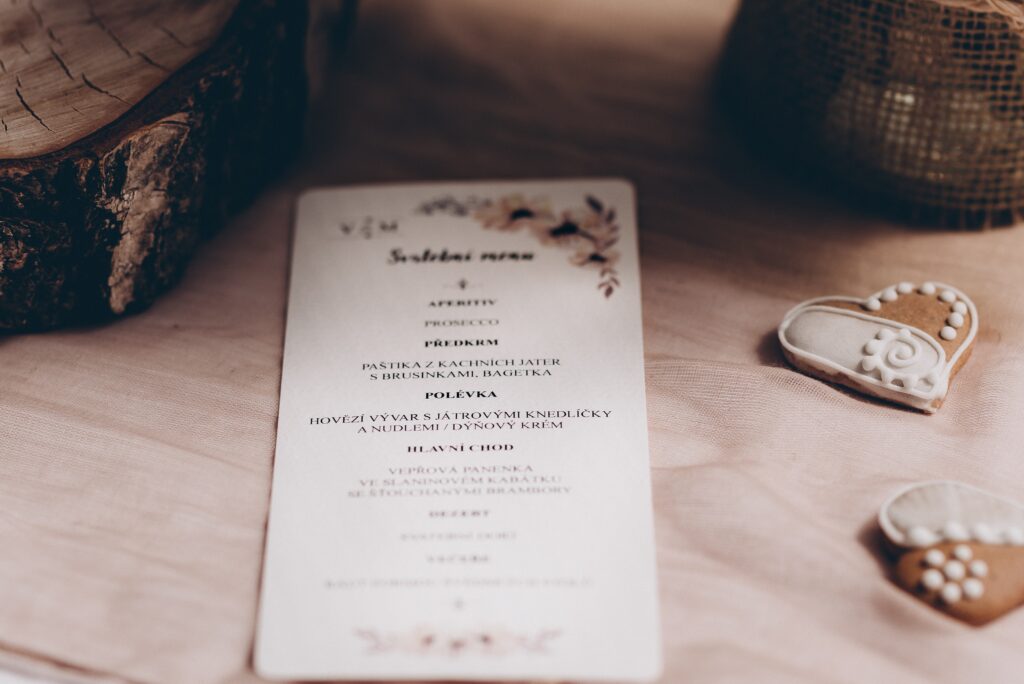 V & M
Svatební menu
APERITIV
PROSECCO
PŘEDKRM
PAŠTIKA Z KACHNÍCH JATER
S BRUSINKAMI, BAGETKA
POLÉVKA
HOVĚZÍ VÝVAR S JÁTROVÝMI KNEDLÍČKY
A NUDLEMI / DÝŇOVÝ KRÉM
HLAVNÍ CHOD
VEPŘOVÁ PANENKA
VE SLANINOVÉM KABÁTKU
SE ŠŤOUCHANÝMI BRAMBORY
DEZERT
SVATEBNÍ DORT
VEČEŘE